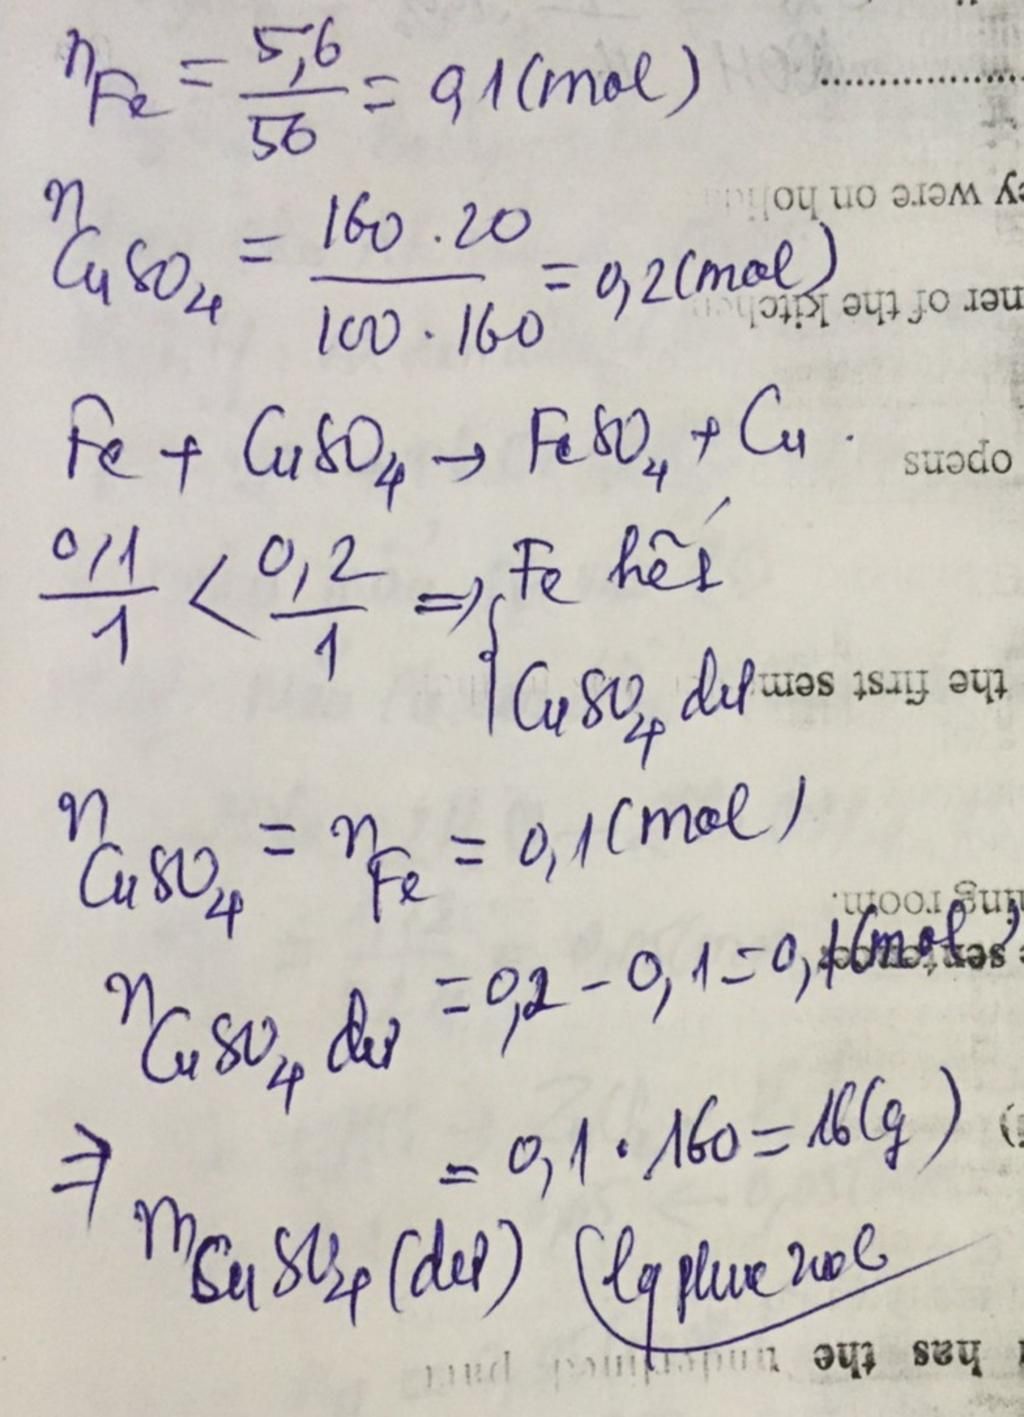 nFe = 5,6/56 = 0,1 (mol)
nCuSO4 = 160 . 20 / 100 . 160 = 0,2 (mol)
Fe + CuSO4 → FeSO4 + Cu .
0,1/1 < 0,2/1 ⇒ { Fe hết
CuSO4 dư
nCuSO4 = nFe = 0,1 (mol)
nCuSO4 dư = 0,2 - 0,1 = 0,1 (mol)
⇒ mCuSO4 (dư) = 0,1 . 160 = 16 (g)
ey were on holi
ner of the kitchen
opens
the first sem
ning room.
has the underlined part